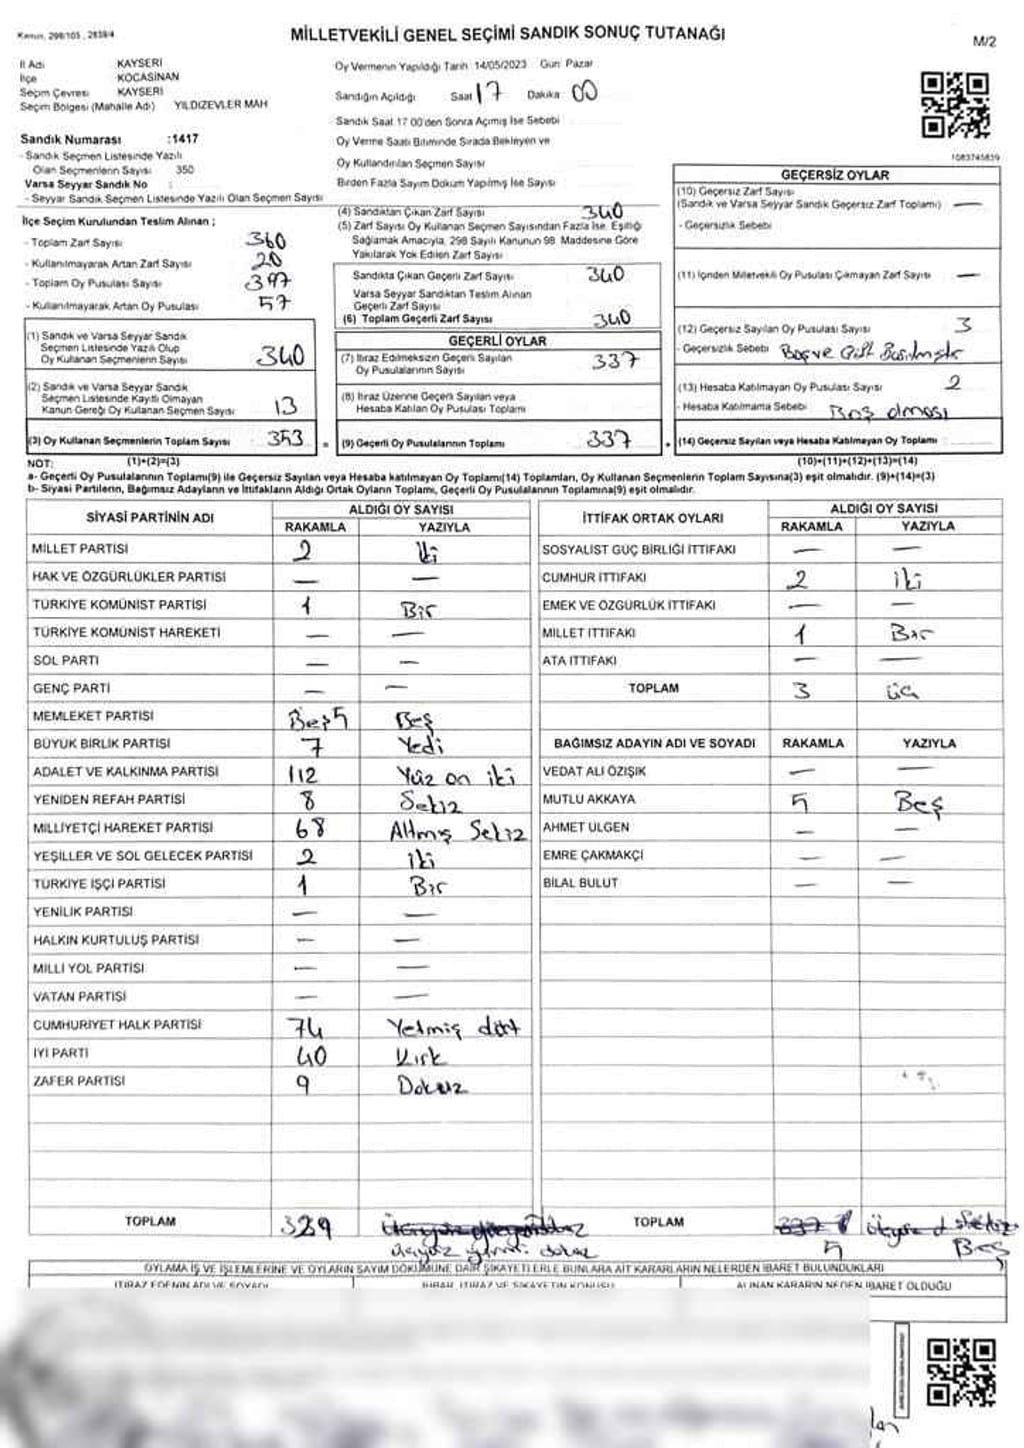 Kanun, 298/105 , 2839/4
MİLLETVEKİLİ GENEL SEÇİMİ SANDIK SONUÇ TUTANAĞI
M/2
İl Adı KAYSERİ
İlçe KOCASİNAN
Seçim Çevresi KAYSERİ
Seçim Bölgesi (Mahalle Adı) YILDIZEVLER MAH
Sandık Numarası :1417
- Sandık Seçmen Listesinde Yazılı
Olan Seçmenlerin Sayısı 350
Varsa Seyyar Sandık No :
- Seyyar Sandık Seçmen Listesinde Yazılı Olan Seçmen Sayısı
Oy Vermenin Yapıldığı Tarih 14/05/2023 Gün: Pazar
Sandığın Açıldığı Saat 17 Dakika 00
Sandık Saat 17 00'den Sonra Açımış İse Sebebi
Oy Verme Saati Bitiminde Sırada Bekleyen ve
Oy Kullandırılan Seçmen Sayısı
Birden Fazla Sayım Döküm Yapılmış İse Sayısı
1083745839
İlçe Seçim Kurulundan Teslim Alınan ;
- Toplam Zarf Sayısı 360
- Kullanılmayarak Artan Zarf Sayısı 20
- Toplam Oy Pusulası Sayısı 397
- Kullanılmayarak Artan Oy Pusulası 57
(1) Sandık ve Varsa Seyyar Sandık
Seçmen Listesinde Yazılı Olup
Oy Kullanan Seçmenlerin Sayısı 340
(2) Sandık ve Varsa Seyyar Sandık
Seçmen Listesinde Kayıtlı Olmayan
Kanun Gereği Oy Kullanan Seçmen Sayısı 13
(3) Oy Kullanan Seçmenlerin Toplam Sayısı 353 =
(4) Sandıktan Çıkan Zarf Sayısı 340
(5) Zarf Sayısı Oy Kullanan Seçmen Sayısından Fazla İse, Eşitliği
Sağlamak Amacıyla, 298 Sayılı Kanunun 98. Maddesine Göre
Yakılarak Yok Edilen Zarf Sayısı
Sandıkta Çıkan Geçerli Zarf Sayısı 340
Varsa Seyyar Sandıktan Teslim Alınan
Geçerli Zarf Sayısı
(6) Toplam Geçerli Zarf Sayısı 340
GEÇERLİ OYLAR
(7) İtiraz Edilmeksizin Geçerli Sayılan
Oy Pusulalarının Sayısı 337
(8) İtiraz Üzerine Geçerli Sayılan veya
Hesaba Katılan Oy Pusulası Toplamı
(9) Geçerli Oy Pusulalarının Toplamı 337
GEÇERSİZ OYLAR
(10) Geçersiz Zarf Sayısı
(Sandık ve Varsa Seyyar Sandık Geçersiz Zarf Toplamı) —
- Geçersizlik Sebebi
(11) İçinden Milletvekili Oy Pusulası Çıkmayan Zarf Sayısı —
(12) Geçersiz Sayılan Oy Pusulası Sayısı 3
- Geçersizlik Sebebi Boş ve Çift Basılmıştır
(13) Hesaba Katılmayan Oy Pusulası Sayısı 2
- Hesaba Katılmama Sebebi Boş olması
(14) Geçersiz Sayılan veya Hesaba Katılmayan Oy Toplamı
NOT: (1)+(2)=(3) (10)+(11)+(12)+(13)=(14)
a- Geçerli Oy Pusulalarının Toplamı(9) ile Geçersiz Sayılan veya Hesaba katılmayan Oy Toplamı(14) Toplamları, Oy Kullanan Seçmenlerin Toplam Sayısına(3) eşit olmalıdır. (9)+(14)=(3)
b- Siyasi Partilerin, Bağımsız Adayların ve İttifakların Aldığı Ortak Oyların Toplamı, Geçerli Oy Pusulalarının Toplamına(9) eşit olmalıdır.
SİYASİ PARTİNİN ADI ALDIĞI OY SAYISI
RAKAMLA YAZIYLA
MİLLET PARTİSİ 2 İki
HAK VE ÖZGÜRLÜKLER PARTİSİ — —
TÜRKİYE KOMÜNİST PARTİSİ 1 Bir
TÜRKİYE KOMÜNİST HAREKETİ — —
SOL PARTİ — —
GENÇ PARTİ — —
MEMLEKET PARTİSİ Beş 5 Beş
BÜYÜK BİRLİK PARTİSİ 7 Yedi
ADALET VE KALKINMA PARTİSİ 112 Yüz on iki
YENİDEN REFAH PARTİSİ 8 Sekiz
MİLLİYETÇİ HAREKET PARTİSİ 68 Altmış Sekiz
YEŞİLLER VE SOL GELECEK PARTİSİ 2 iki
TÜRKİYE İŞÇİ PARTİSİ 1 Bir
YENİLİK PARTİSİ — —
HALKIN KURTULUŞ PARTİSİ — —
MİLLİ YOL PARTİSİ — —
VATAN PARTİSİ — —
CUMHURİYET HALK PARTİSİ 74 Yetmiş dört
İYİ PARTİ 40 Kırk
ZAFER PARTİSİ 9 Dokuz
TOPLAM 329
üçyüz yirmi dokuz
İTTİFAK ORTAK OYLARI ALDIĞI OY SAYISI
RAKAMLA YAZIYLA
SOSYALİST GÜÇ BİRLİĞİ İTTİFAKI — —
CUMHUR İTTİFAKI 2 iki
EMEK VE ÖZGÜRLÜK İTTİFAKI — —
MİLLET İTTİFAKI 1 Bir
ATA İTTİFAKI — —
TOPLAM 3 üç
BAĞIMSIZ ADAYIN ADI VE SOYADI RAKAMLA YAZIYLA
VEDAT ALİ ÖZIŞIK — —
MUTLU AKKAYA 5 Beş
AHMET ÜLGEN — —
EMRE ÇAKMAKÇI — —
BİLAL BULUT — —
TOPLAM 337
5 Beş
OYLAMA İŞ VE İŞLEMLERİNE VE OYLARIN SAYIM DÖKÜMÜNE DAİR ŞİKAYETLERLE BUNLARA AİT KARARLARIN NELERDEN İBARET BULUNDUKLARI
İTİRAZ EDENİN ADI VE SOYADI İHBAR, İTİRAZ VE ŞİKAYETİN KONUSU ALINAN KARARIN NEDEN İBARET OLDUĞU